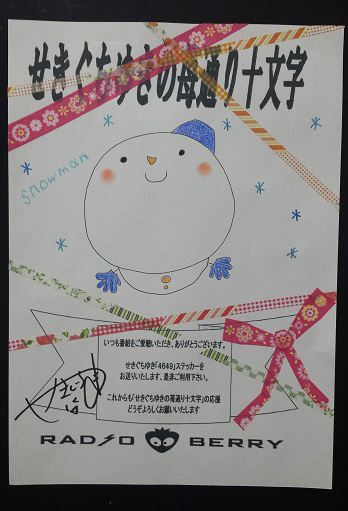 せきぐちゆきの苺通り十文字
snowman
いつも番組をご愛聴いただき、ありがとうございます。
せきぐちゆき「4649」ステッカーを
お送りいたします、是非ご利用下さい。
これからも「せきぐちゆきの苺通り十文字」の応援
どうぞよろしくお願いいたします
RADIO BERRY